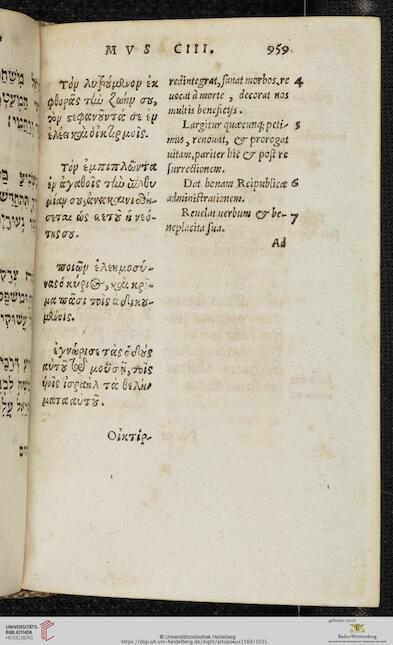 MVS CIII. 959
Τὸν λυτρούμενον ἐκ
φθορᾶς τὴν ζωήν σου,
τὸν στεφανοῦντά σε ἐν
ἐλέει καὶ οἰκτιρμοῖς.
Τὸν ἐμπιπλῶντα
ἐν ἀγαθοῖς τὴν ἐπιθυ
μίαν σου, ἀνακαινισθή-
σεται ὡς ἀετοῦ ἡ νεό-
της σου.
ποιῶν ἐλεημοσύ-
νας ὁ κύριος, καὶ κρί-
μα πᾶσι τοῖς ἀδικου-
μένοις.
ἐγνώρισε τὰς ὁδοὺς
αὐτοῦ τῷ μουσῇ, τοῖς
υἱοῖς ἰσραὴλ τὰ θελή-
ματα αὐτοῦ.
Οἰκτίρ-
redintegrat, sanat morbos, re 4
uocat à morte, decorat nos
multis beneficijs.
Largitur quæcunq; peti- 5
mus, renouat, & prorogat
uitam, pariter hîc & post re
surrectionem.
Dat bonam Reipublicæ 6
administrationem.
Reuelat uerbum & be- 7
neplacita sua.
Ad
UNIVERSITÄTS-
BIBLIOTHEK
HEIDELBERG
© Universitätsbibliothek Heidelberg
https://digi.ub.uni-heidelberg.de/diglit/artopoeus1569/1035
gefördert durch
Baden-Württemberg